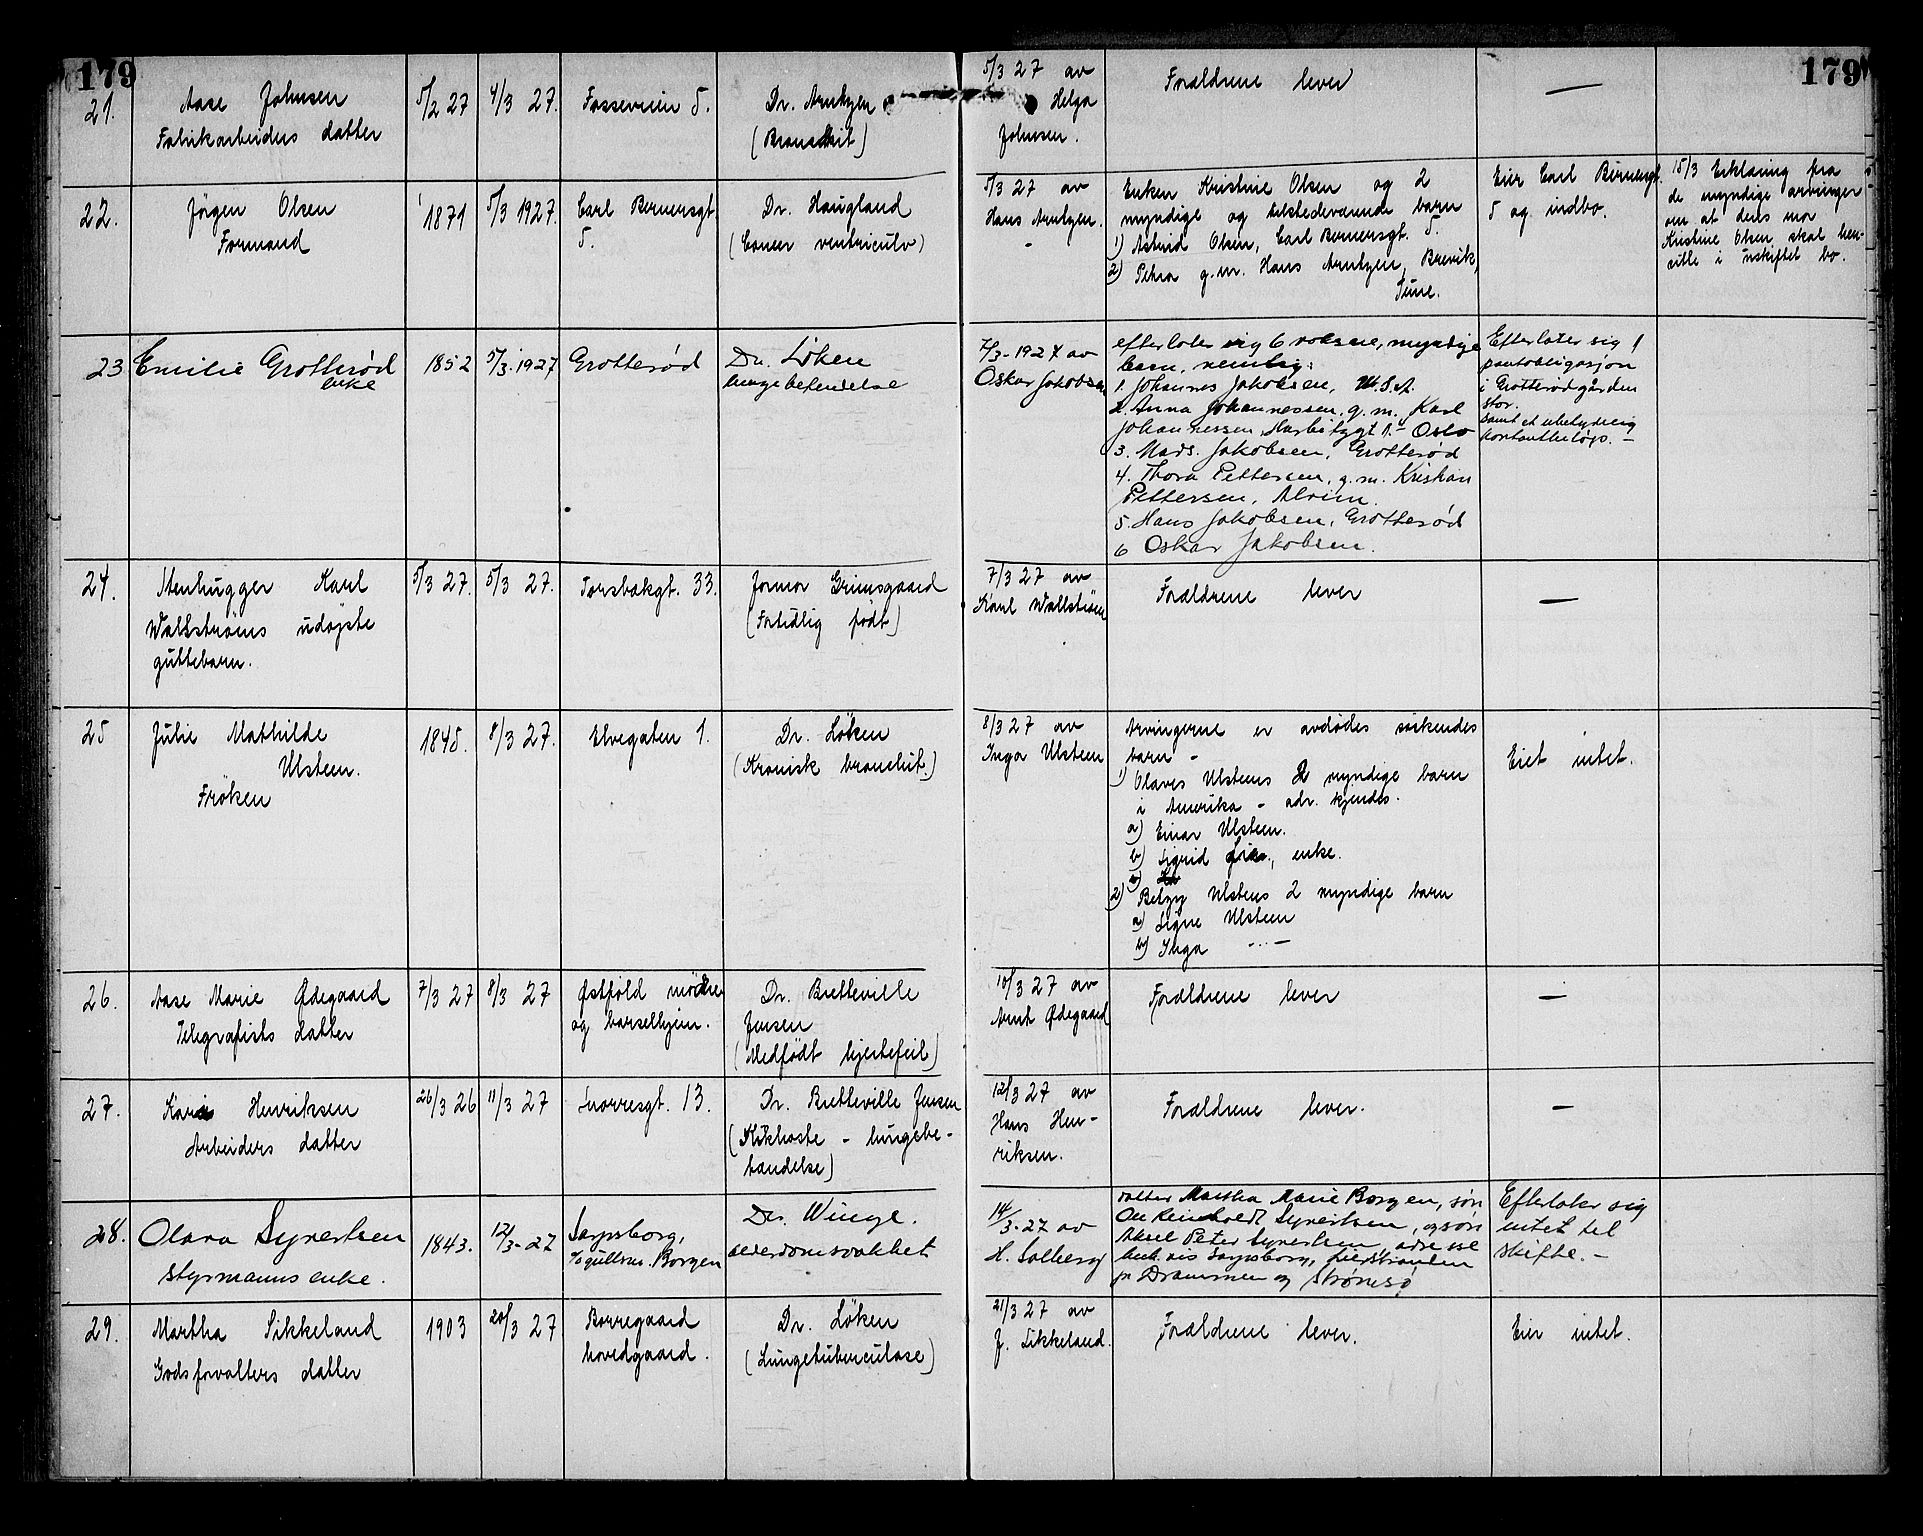 179
179
21.
Aase Johnsen
Fabrikarbeiders datter
5/2 27
4/3 27.
Fosseveien 5.
Dr. Arntzen
(Bronschit)
5/3 27 av
Helga
Johnsen.
Foraldrene lever
—
22.
Jörgen Olsen
Formand
1871
5/3 1927.
Carl Bernersgt.
5.
Dr. Haugland
(Cancer ventriculo)
5/3 27 av
Hans Arntzen.
Enken Kristine Olsen og 2
myndige og tilstedeværende barn
1) Astrid Olsen, Carl Bernersgt. 5.
2) Petra g.m. Hans Arntzen, Brevik,
Tune.
Eier Carl Bernersgt.
5 og indbo.
15/3 Erklæring fra
de myndige arvinger
om at deres mor
Kristine Olsen skal hen-
sitte i uskiftet bo.
23
Emilie Grotterød
enke
1852
5/3.1927
Grotterød
Dr. Löken
lungebetendelse
7/3-1927 av
Oskar Jakobsen
efterlater sig 6 voksne, myndige
barn, nemlig:
1. Johannes Jakobsen, U.S.A.
2. Anna Johannessen, g.m. Karl
Johannessen, Harbitzgt 1. Oslo
3. Mads. Jakobsen, Grotterød
4. Thora Pettersen, g.m. Kristian
Pettersen, Alvim.
5. Hans Jakobsen, Grotterød
6 Oskar Jakobsen.
Efterlater sig 1
pantobligasjon
i Grotterødgården
stor.
samt et ubetydelig
kontantbeløp. —
24.
Stenhugger Karl
Wallströms udöpte
guttebarn.
5/3 27.
5/3 27.
Torsbakgt. 33.
Jormor Grimsgaard
(Fortidlig født)
7/3 27 av
Karl Wallström
Foraldrene lever
—
25
Julie Mathilde
Ulsteen.
Fröken
1845.
8/3 27.
Elvegaten 1.
Dr. Löken
(Kronisk bronchit.)
8/3 27 av
Inga Ulsteen
Arvingerne er avdødes söskendes
barn -
1) Olaves Ulsteens 2 myndige barn
i Amerika - adr. kjendes.
a) Einar Ulsteen.
b) Sigrid Lie, enke.
2) Betzy Ulstens 2 myndige barn
a) Signe Ulsteen
b) Inga —"—
Eiet intet.
26.
Aase Marie Ødegaard
Telegrafists datter
7/3 27
8/3 27
Østfold mödre
og barselhjem.
Dr. Bretteville
Jensen
(Medfödt hjertefeil)
10/3 27 av
Arnt Ødegaard
Foraldrene lever
—
27.
Kari Henriksen
Arbeiders datter
26/3 26
11/3 27
Snorresgt. 13.
Dr. Bretteville Jensen
(Kikhoste - lungebe-
tændelse)
12/3 27 av
Hans Hen-
riksen.
Foraldrene lever.
—
28.
Olava Syvertsen
styrmanns enke.
1843.
12/3-27
Sarpsborg,
Borgen
Dr. Winge.
alderdomssvakhet
14/3-27 av
H. Solberg
datter Martha Marie Borgen, søn
Ole Reinholdt Syvertsen, og søn
Aksel Peter Syvertsen, adresse
hvh.vis Sarpsborg, Lierstranden
pr Drammen og Strømsø
Efterlater sig
intet til
skifte. —
29.
Martha Sikkeland
Godsforvalters datter
1903
20/3 27
Borregaard
hovedgaard.
Dr. Löken
(Lungetuberculose)
21/3 27 av
J. Sikkeland.
Foraldrene lever.
Eier intet.